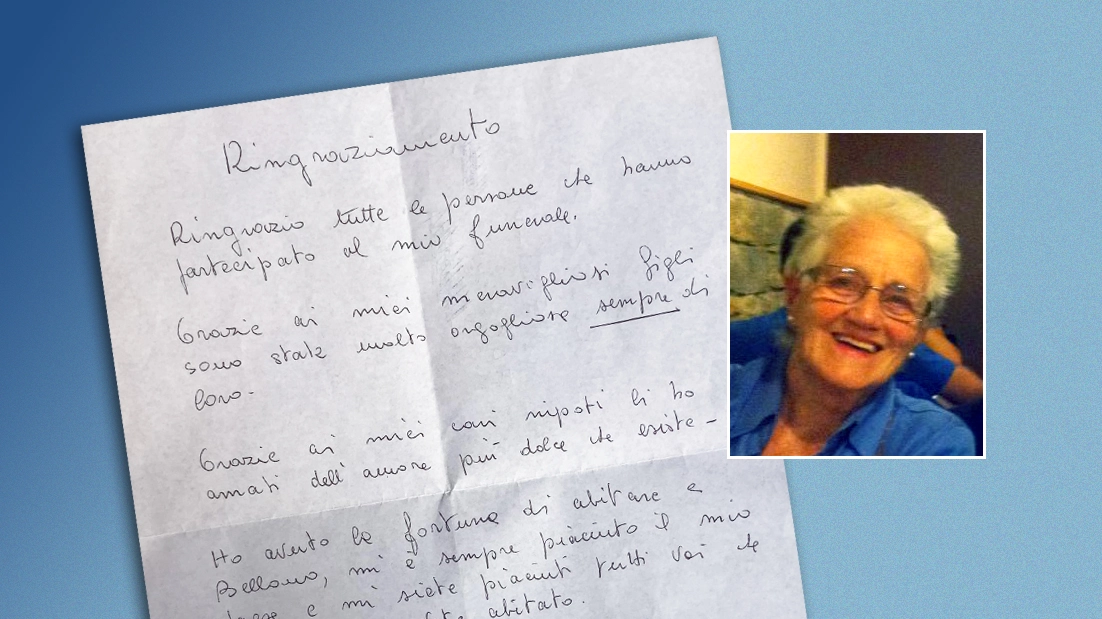 Ringraziamento
Ringrazio tutte le persone che hanno
partecipato al mio funerale.
Grazie ai miei meravigliosi figli
sono stata molto orgogliosa sempre di
loro-
Grazie ai miei cari nipoti li ho
amati dell'amore più dolce che esiste -
Ho avuto la fortuna di abitare a
Bellano, mi è sempre piaciuto il mio
e mi siete piaciuti tutti voi che
abitato.